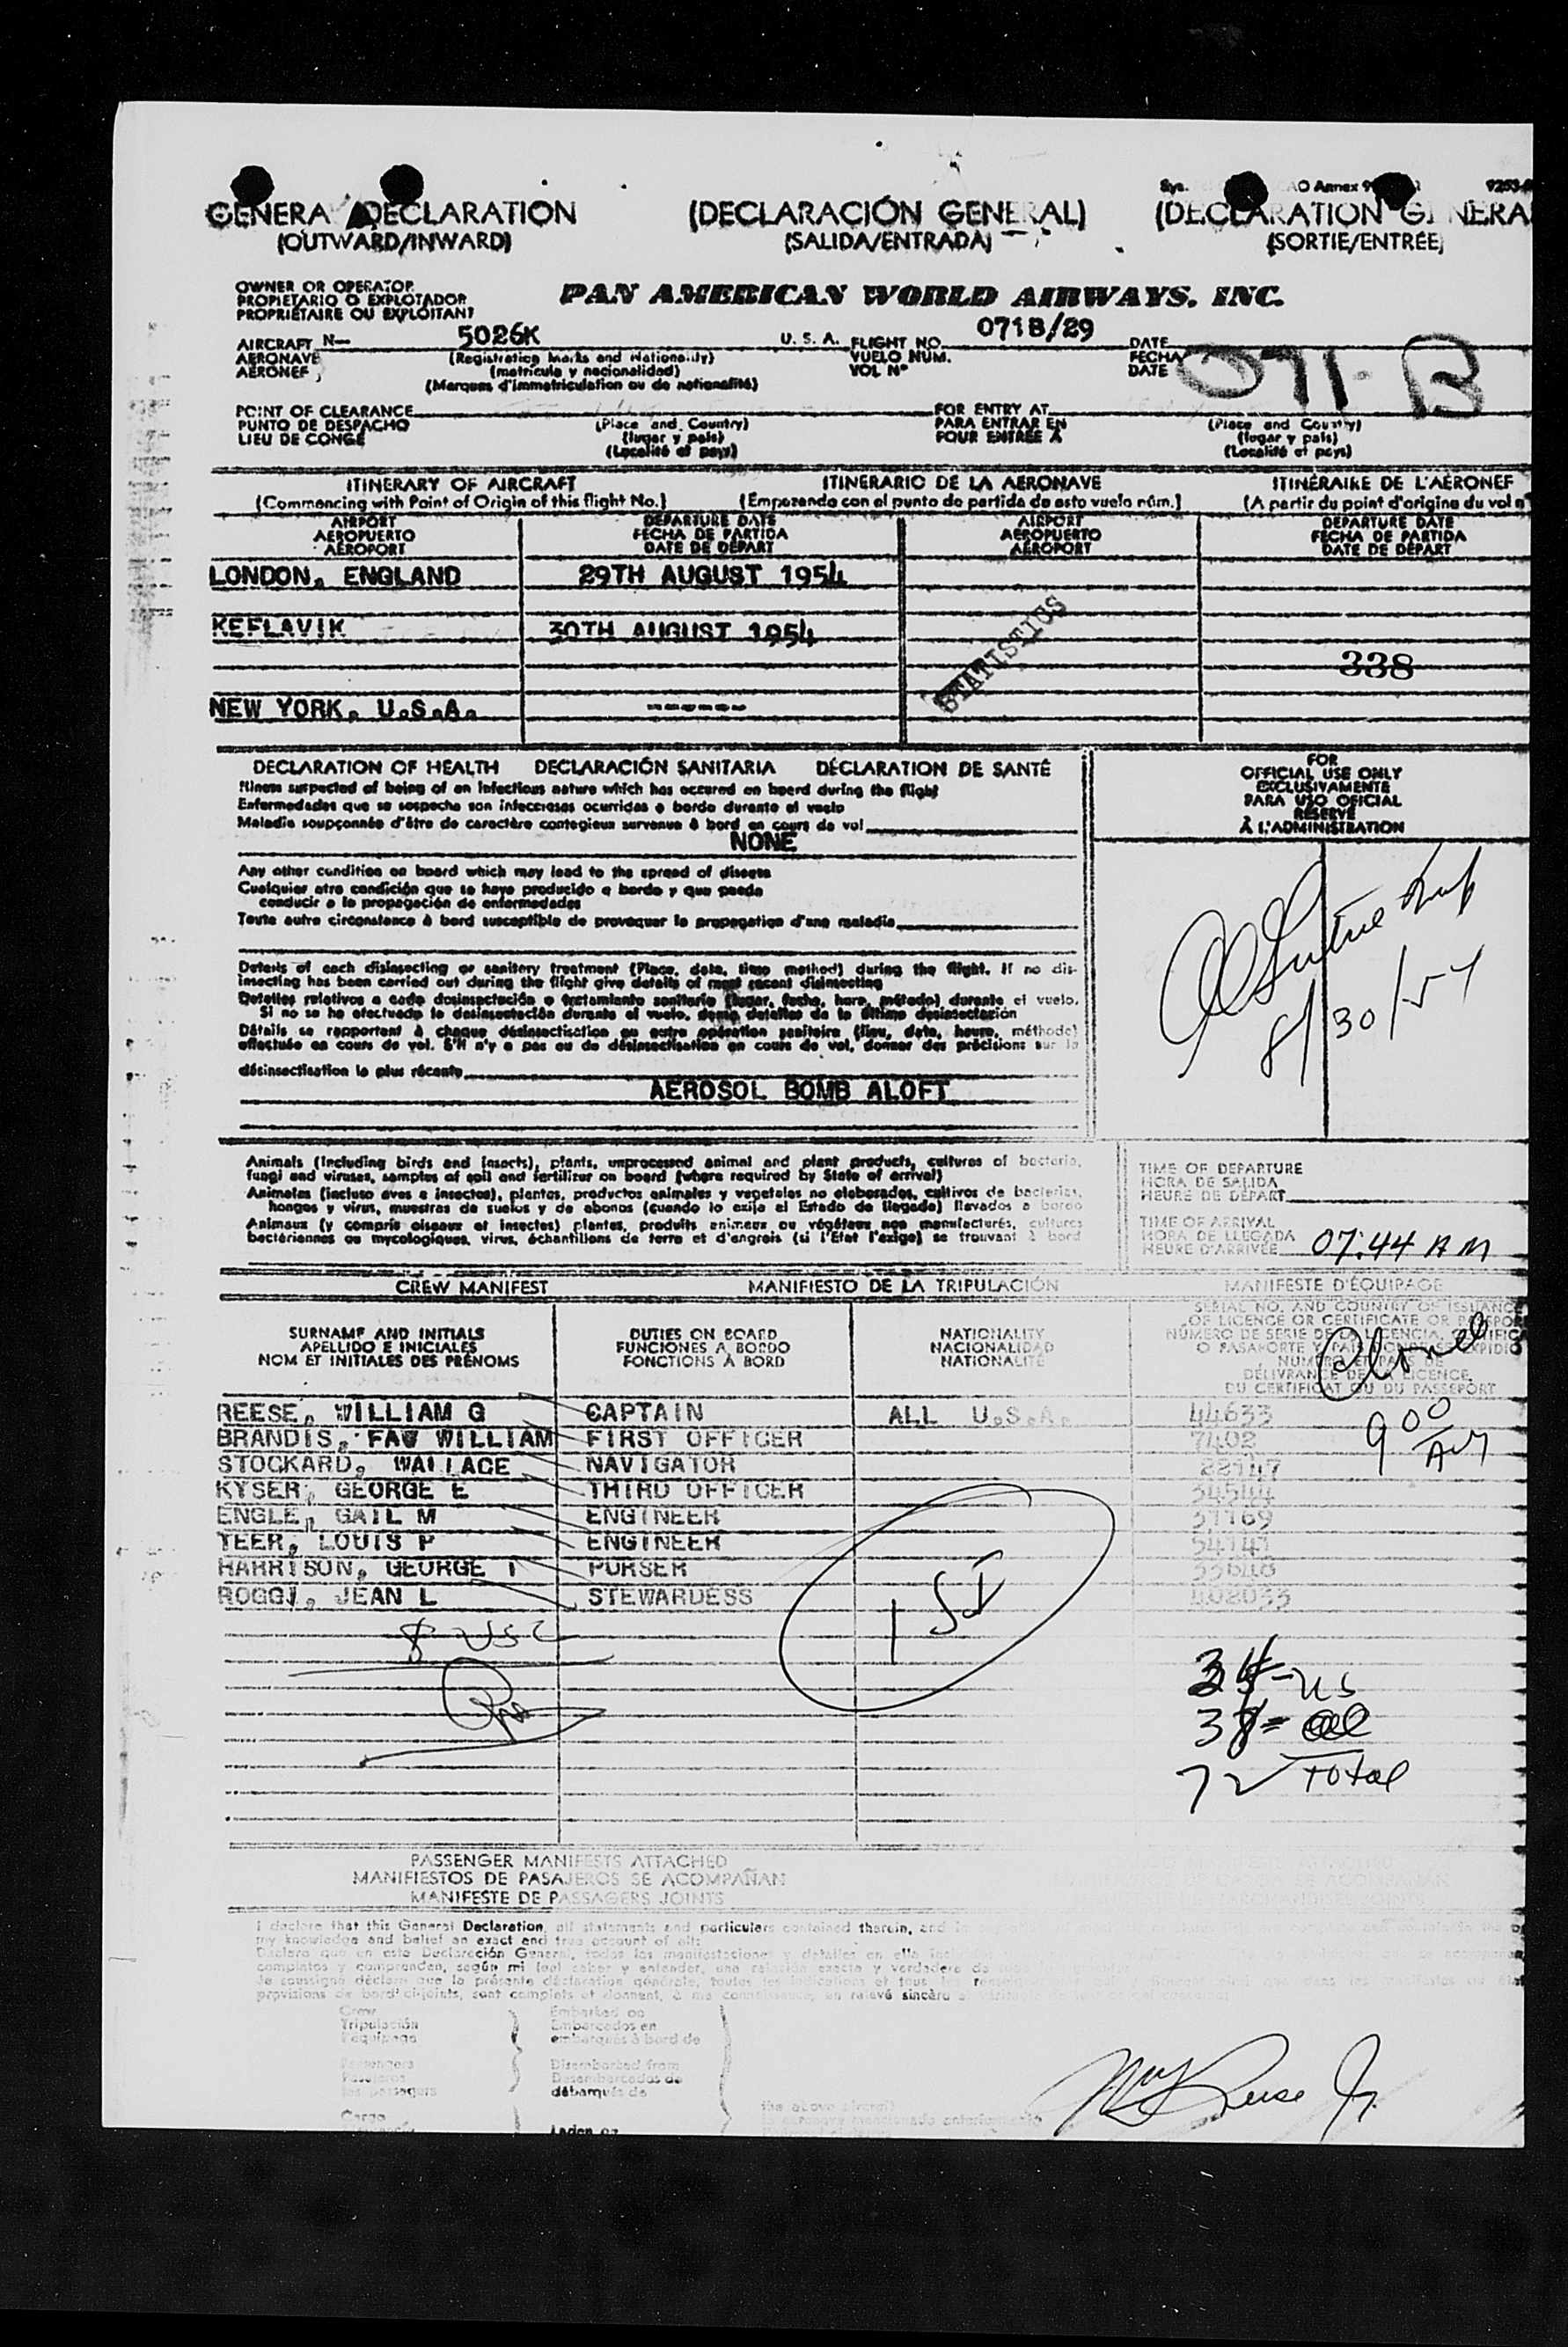 GENERAL DECLARATION (DECLARACIÓN GENERAL) (DECLARATION GENERA
(OUTWARD/INWARD) (SALIDA/ENTRADA) (SORTIE/ENTRÉE)
OWNER OR OPERATOR
PROPIETARIO O EXPLOTADOR
PROPRIÉTAIRE OU EXPLOITANT
PAN AMERICAN WORLD AIRWAYS, INC.
AIRCRAFT N— 5026K U. S. A. FLIGHT NO. 071B/29 DATE
AERONAVE (Registration Marks and Nationality) VUELO NUM. FECHA
AÉRONEF (matrícula y nacionalidad) VOL Nº DATE 071-B
(Marques d'immatriculation ou de nationalité)
POINT OF CLEARANCE FOR ENTRY AT
PUNTO DE DESPACHO (Place and Country) PARA ENTRAR EN (Place and Country)
LIEU DE CONGÉ (lugar y país) POUR ENTRÉE À (lugar y país)
(Localité et pays) (Localité et pays)
ITINERARY OF AIRCRAFT ITINERARIO DE LA AERONAVE ITINÉRAIRE DE L'AÉRONEF
(Commencing with Point of Origin of this flight No.) (Empezando con el punto de partida de esto vuelo núm.) (A partir du point d'origine du vol n
AIRPORT DEPARTURE DATE AIRPORT DEPARTURE DATE
AEROPUERTO FECHA DE PARTIDA AEROPUERTO FECHA DE PARTIDA
AÉROPORT DATE DE DÉPART AÉROPORT DATE DE DÉPART
LONDON, ENGLAND 29TH AUGUST 1954
KEFLAVIK 30TH AUGUST 1954
STATISTICS
338
NEW YORK, U.S.A. ------
DECLARATION OF HEALTH DECLARACIÓN SANITARIA DÉCLARATION DE SANTÉ
FOR
OFFICIAL USE ONLY
EXCLUSIVAMENTE
PARA USO OFICIAL
RÉSERVÉ
À L'ADMINISTRATION
Illness suspected of being of an infectious nature which has occured on board during the flight
Enfermedades que se sospecha son infecciosas ocurridas a bordo durante el vuelo
Maladie soupçonnée d'être de caractère contagieux survenue à bord en cours de vol
NONE
Any other condition on board which may lead to the spread of disease
Cualquier otra condición que se haya producido a bordo y que pueda
conducir a la propagación de enfermedades
Toute autre circonstance à bord susceptible de provoquer la propagation d'une maladie
8/30/54
Details of each disinsecting or sanitary treatment (Place, date, time method) during the flight. If no dis-
insecting has been carried out during the flight give details of most recent disinsecting
Detalles relativos a cada desinsectación o tratamiento sanitario (lugar, fecha, hora, método) durante el vuelo.
Si no se ha efectuado la desinsectación durante el vuelo, denso detalles de la última desinsectación
Détails se rapportant à chaque désinsectisation ou autre opération sanitaire (lieu, date, heure, méthode)
effectuée en cours de vol. S'il n'y a pas eu de désinsectisation en cours de vol, donner des précisions sur la
désinsectisation la plus récente
AEROSOL BOMB ALOFT
Animals (including birds and insects), plants, unprocessed animal and plant products, cultures of bacteria,
fungi and viruses, samples of soil and fertilizer on board (where required by State of arrival)
Animales (incluso aves e insectos), plantas, productos animales y vegetales no elaborados, cultivos de bacterias,
hongos y virus, muestras de suelos y de abonos (cuando lo exija el Estado de llegada) llevados a bordo
Animaux (y compris oiseaux et insectes) plantes, produits animaux ou végétaux non manufacturés, cultures
bactériennes ou mycologiques, virus, échantillons de terre et d'engrais (si l'État l'exige) se trouvant à bord
TIME OF DEPARTURE
HORA DE SALIDA
HEURE DE DÉPART
TIME OF ARRIVAL
HORA DE LLEGADA
HEURE D'ARRIVÉE 07:44 AM
CREW MANIFEST MANIFIESTO DE LA TRIPULACIÓN MANIFESTE D'ÉQUIPAGE
SURNAME AND INITIALS DUTIES ON BOARD NATIONALITY
APELLIDO E INICIALES FUNCIONES A BORDO NACIONALIDAD
NOM ET INITIALES DES PRÉNOMS FONCTIONS À BORD NATIONALITÉ
SERIAL NO. AND COUNTRY OF ISSUANCE
OF LICENCE OR CERTIFICATE OR PASSPOR
DU CERTIFICAT OU DU PASSEPORT
REESE, WILLIAM G CAPTAIN ALL U.S.A. 44633
BRANDIS, FAW WILLIAM FIRST OFFICER 7402
STOCKARD, WALLACE NAVIGATOR 22147
KYSER, GEORGE E THIRD OFFICER 34544
ENGLE, GAIL M ENGINEER 37169
TEER, LOUIS P ENGINEER 54141
HARRISON, GEORGE T PURSER
ROGGI, JEAN L STEWARDESS 402033
900
8 USC
34-US
38=
72 Total
PASSENGER MANIFESTS ATTACHED
MANIFIESTOS DE PASAJEROS SE ACOMPAÑAN
MANIFESTE DE PASSAGERS JOINTS
I declare that this General Declaration, all statements and particulars contained therein, and
my knowledge and belief an exact and true account of all
Declaro que en esta Declaración General, todas las manifestaciones y detalles en ella
completos y comprenden, según mi leal saber y entender, una relación exacta y verdadera de
Je soussigné déclare que la présente déclaration générale, toutes les indications et tous les
provisions de bord ci-joints, sont complets et donnent, à ma connaissance, un relevé sincère
Crew Embarked on
Tripulación Embarcados en
L'équipage embarqués à bord de
Passengers Disembarked from
Pasajeros Desembarcados de
les passagers débarqués de
Cargo Laden on